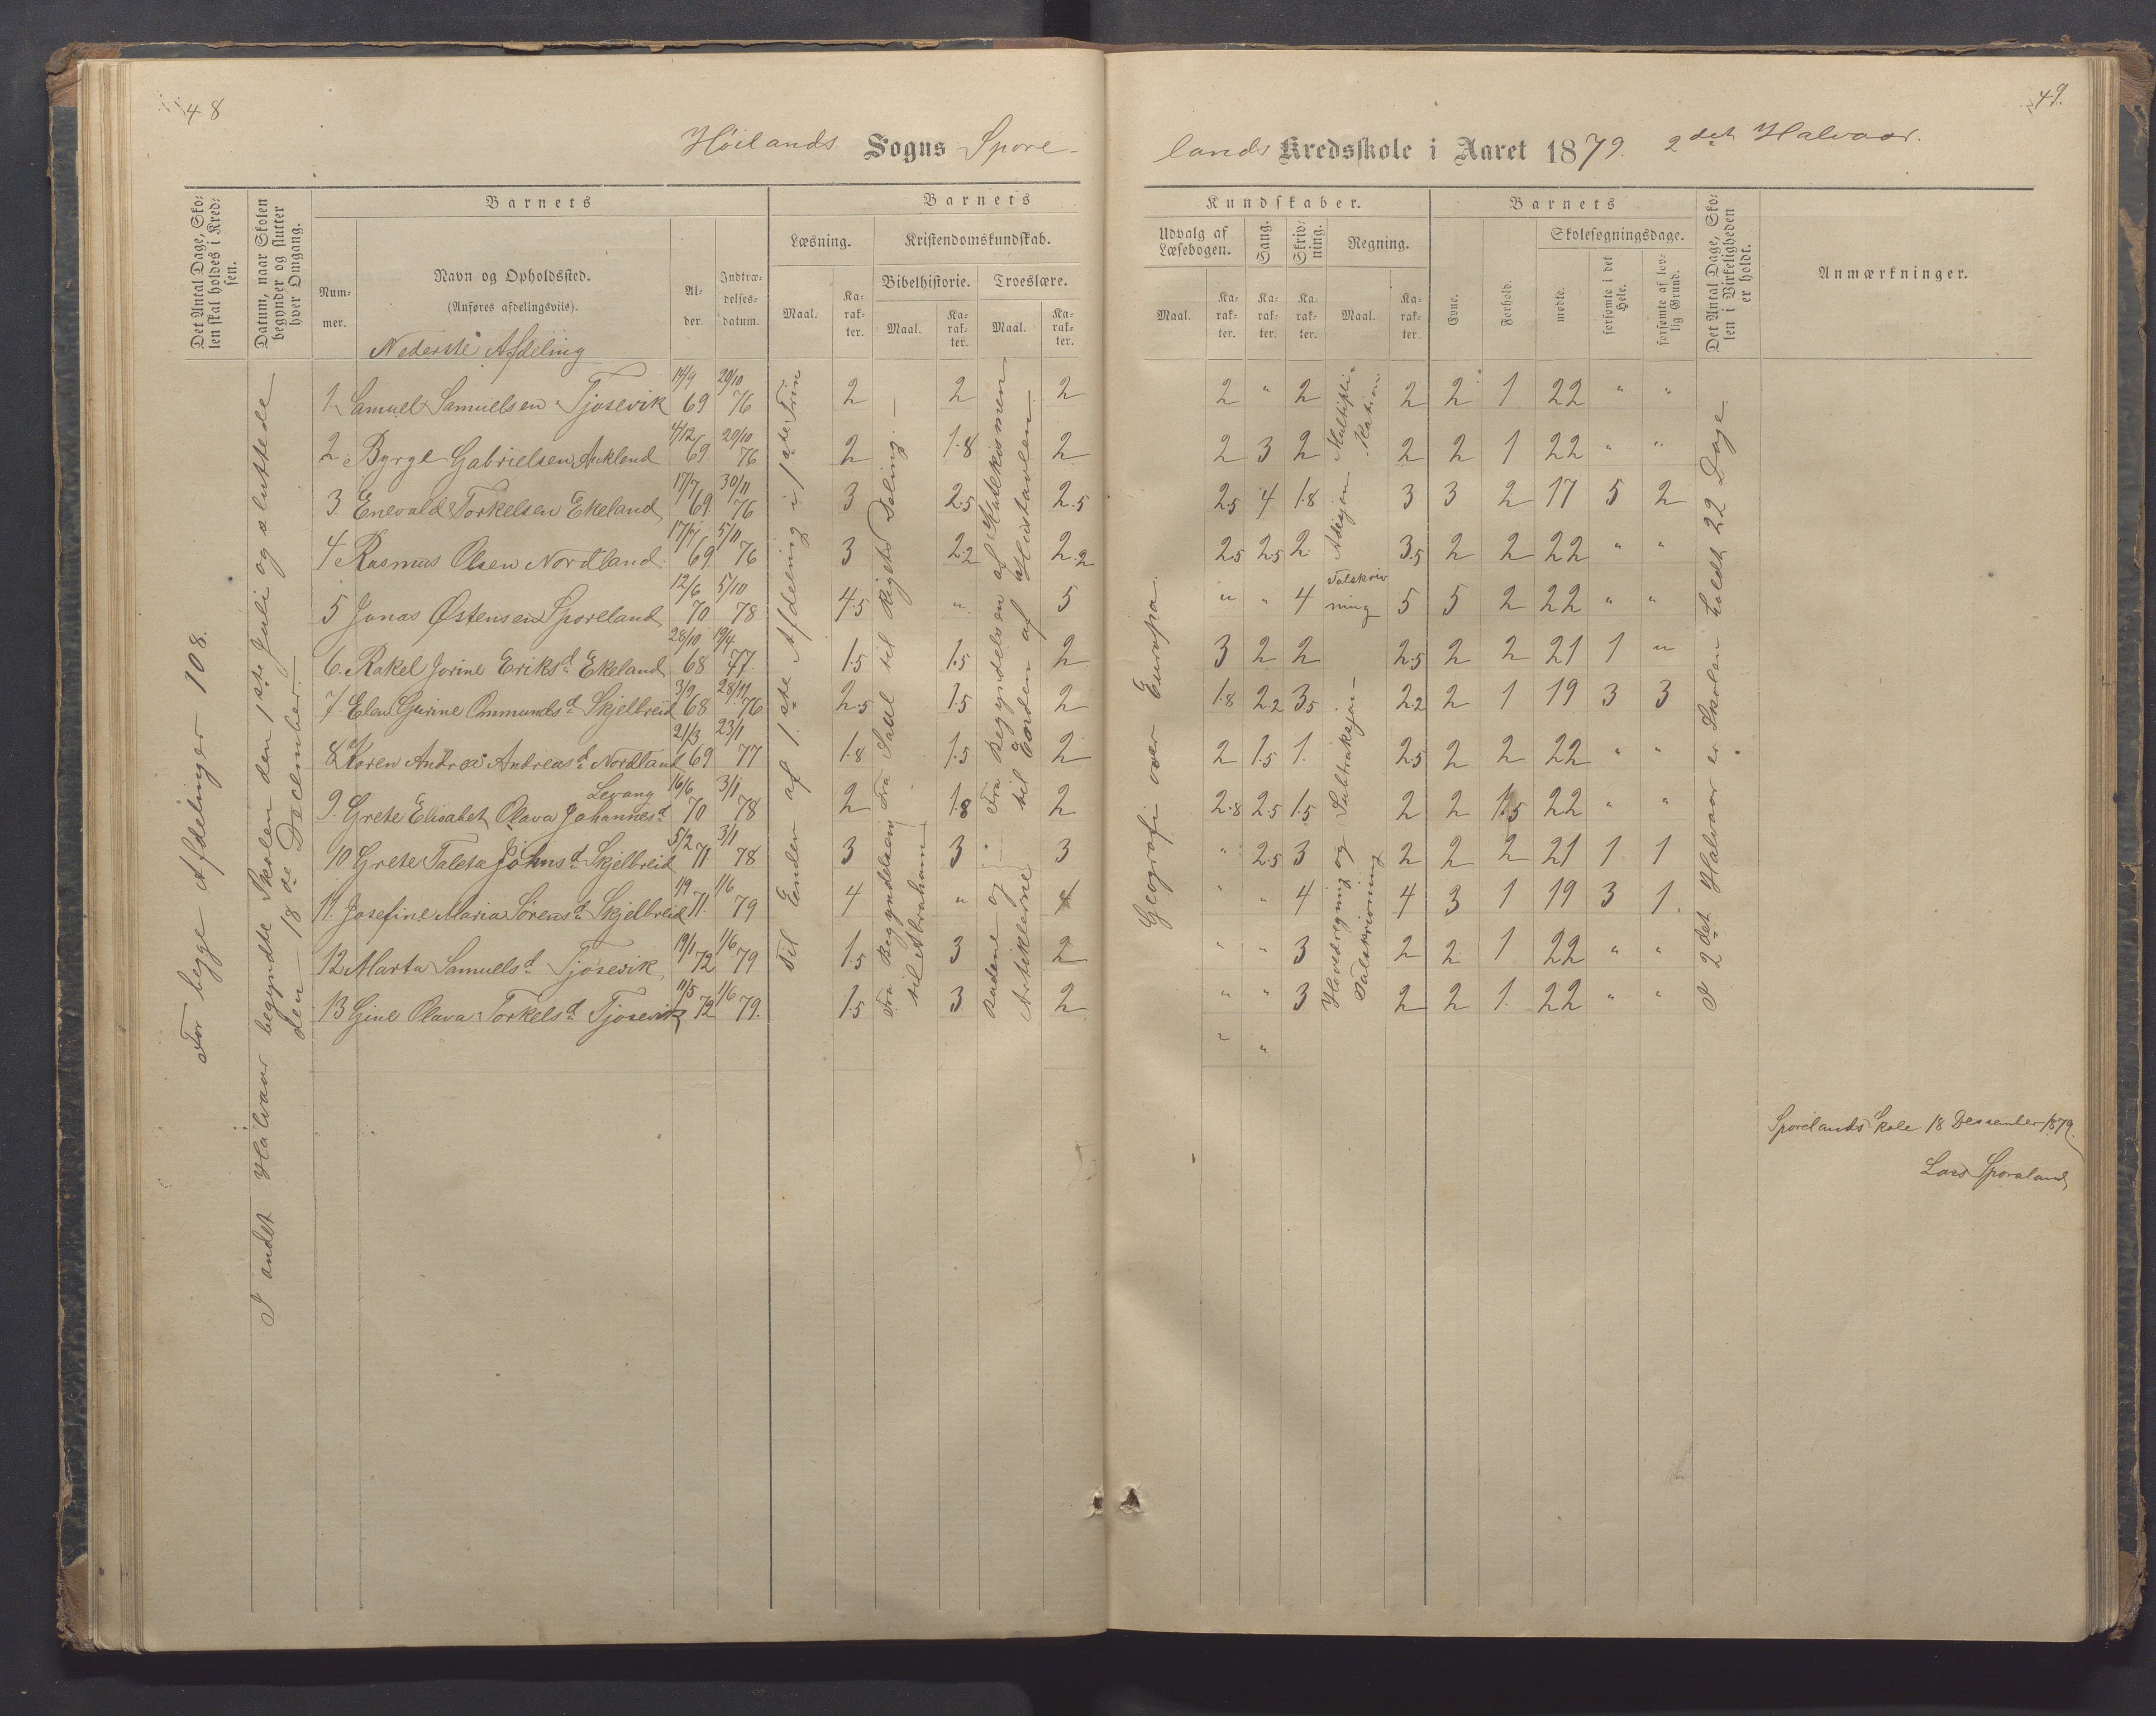 48
49.
Høilands Sogns Spore-
lands Kredsskole i Aaret 1879. 2det Halvaar.
Det Antal Dage, Skolen skal holdes i Kredsen.
Datum, naar Skolen begynder og slutter hver Omgang.
Barnets
Nummer.
Navn og Opholdssted.
(Anføres afdelingsviis).
Alder.
Indtrædelsesdatum.
Barnets
Læsning.
Maal.
Karakter.
Kristendomskundskab.
Bibelhistorie.
Maal.
Karakter.
Troeslære.
Maal.
Karakter.
Kundskaber.
Udvalg af Læsebogen.
Maal.
Karakter.
Sang.
Karakter.
Skrivning.
Karakter.
Regning.
Maal.
Karakter.
Barnets
Evne.
Forhold.
Skolesøgningsdage.
mødte.
forsømte i det Hele.
forsømte af lovlig Grund.
Det Antal Dage, Skolen i Virkeligheden er holdt.
Anmærkninger.
Nederste Afdeling
For begge Afdelinger 108.
I andet Halvaar begyndte Skolen den 1ste Juli og sluttede
den 18de December.
1. Samuel Samuelsen Tjosevik 14/9 69 20/10 76 2 2 2 2 " 2 2 2 1 22 " "
2. Byrge Gabrielsen Aukland 4/12 69 20/10 76 2 1.8 2 2 3 2 2 2 1 22 " "
3. Enevald Torkelsen Ekeland 17/7 69 30/11 76 3 2.5 2.5 2.5 4 1.8 3 3 2 17 5 2
4 Rasmus Olsen Nordland 17/7 69 5/11 76 3 2.2 2.2 2.5 2.5 2 3.5 2 2 22 " "
5 Jonas Østensen Sporeland 12/6 70 5/10 78 4.5 " 5 " " 4 5 5 2 22 " "
6. Rakel Jorine Eriksd. Ekeland 28/10 68 19/4 77. 1.5 1.5 2 3 2 2 2.5 2 2 21 1 "
7. Elen Gurine Ommundsd. Skjelbreid 3/9 68 28/11 76 2.5 1.5 2 1.8 2.2 3.5 2.2 2 1 19 3 3
8 Karen Andrea Andreasd. Nordland 21/3 69 23/1 77 1.8 1.5 2 2 1.5 1. 2.5 2 2 22 " "
Levang
9. Grete Elisabet Olava Johannesd. 16/6 70 3/1 78 2 1.8 2 2.8 2.5 1.5 2 2 1.5 22 " "
10 Grete Taleta Johnsd. Skjelbreid 5/2 71 3/1 78 3 3 3 " 2.5 3 2 2 2 21 1 1
11. Josefine Maria Sørensd. Skjelbreid 1/9 71. 1/6 79 4 " 4 " " 4 4 3 1 19 3 1.
12 Marta Samuelsd. Tjosevik 19/1 72 1/6 79 1.5 3 2 " " 3 2 2 1 22 " "
13 Gine Olava Torkelsd. Tjosevik 11/5 72 1/6 79. 1.5 3 2 " " 3 2 2 1. 22 " "
" "
Til Enden af 1ste Afdeling i 1ste Trin
Fra Saul til Rigets Deling.
Fra Begyndelsen
til Abraham
Fra Begyndelsen af Katekismen
til Enden af Hustavlen.
Budene og
Artiklerne
Geografi over Europa.
Multiplikation
Adisjon
Talskrivning
Hovedregning og Subtraksjon
Talskrivning
I 2det Halvaar er Skolen holdt 22 Dage.
Sporelands Skole 18 Dessember 1879.
Lars Sporaland